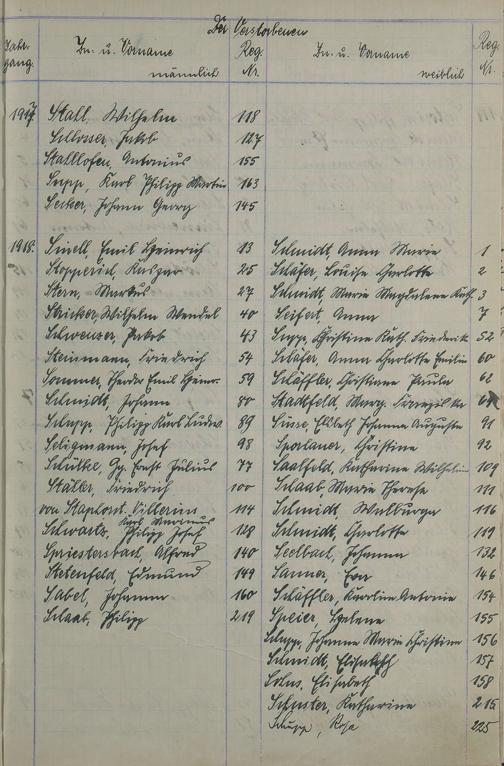 Der Verstorbenen
Jahrgang Zu- u. Vorname männlich Reg. Nr. Zu- u. Vorname weiblich Reg. Nr.
1917 Stall, Wilhelm 118
Schlosser, Jakob 127
Stallhofen, Antonius 155
Karl Philipp Martin 163
Johann Georg 145
1918 Sinell, Emil Heinrich 13 Schmidt, Anna Marie 1
25 Schäfer, Louise Charlotte 2
Stern, Markus 27 Schmidt, Marie Magdalene Kath. 3
Stricker, Wilhelm Wendel 40 Seifert, Anna 7
Schweuzer, Jakob 43 Christine Kath. Friederike 52
Steinmann, Friedrich 54 Schäfer, Anna Charlotte Emilie 60
Sommer, Theodor Emil Heinr. 59 Schäffler, Christiane Paula 62
Schmidt, Johann 80 Stadtfeld, Marg.
Schupp, Philipp Karl Ludw. 89 Elisabeth Johanna Auguste 91
Seligmann, Josef 98 Christine 92
Schultke, Gg. Ernst Julius 77 Saalfeld, Katharine Wilhelmine 109
Städler, Friedrich 100 Schaab, Marie Theresa 111
von 114 Schmidt, Walburga 116
Karl Marinus
Schwartz, Philipp Josef 128 Schmidt, Charlotte 119
Spriestersbach, Alfred 140 Seelbach, Johanna 132
Edmund 149 Sanner, Eva 146
Sabel, Johann 160 Schäffler, Karoline Antonie 154
Schaab, Philipp 219 Speier, Helene 155
Schupp, Johanna Marie Christine 156
Schmidt, Elisabeth 157
Elisabeth 158
Schuster, Katharine 215
Schupp, Rosa 225